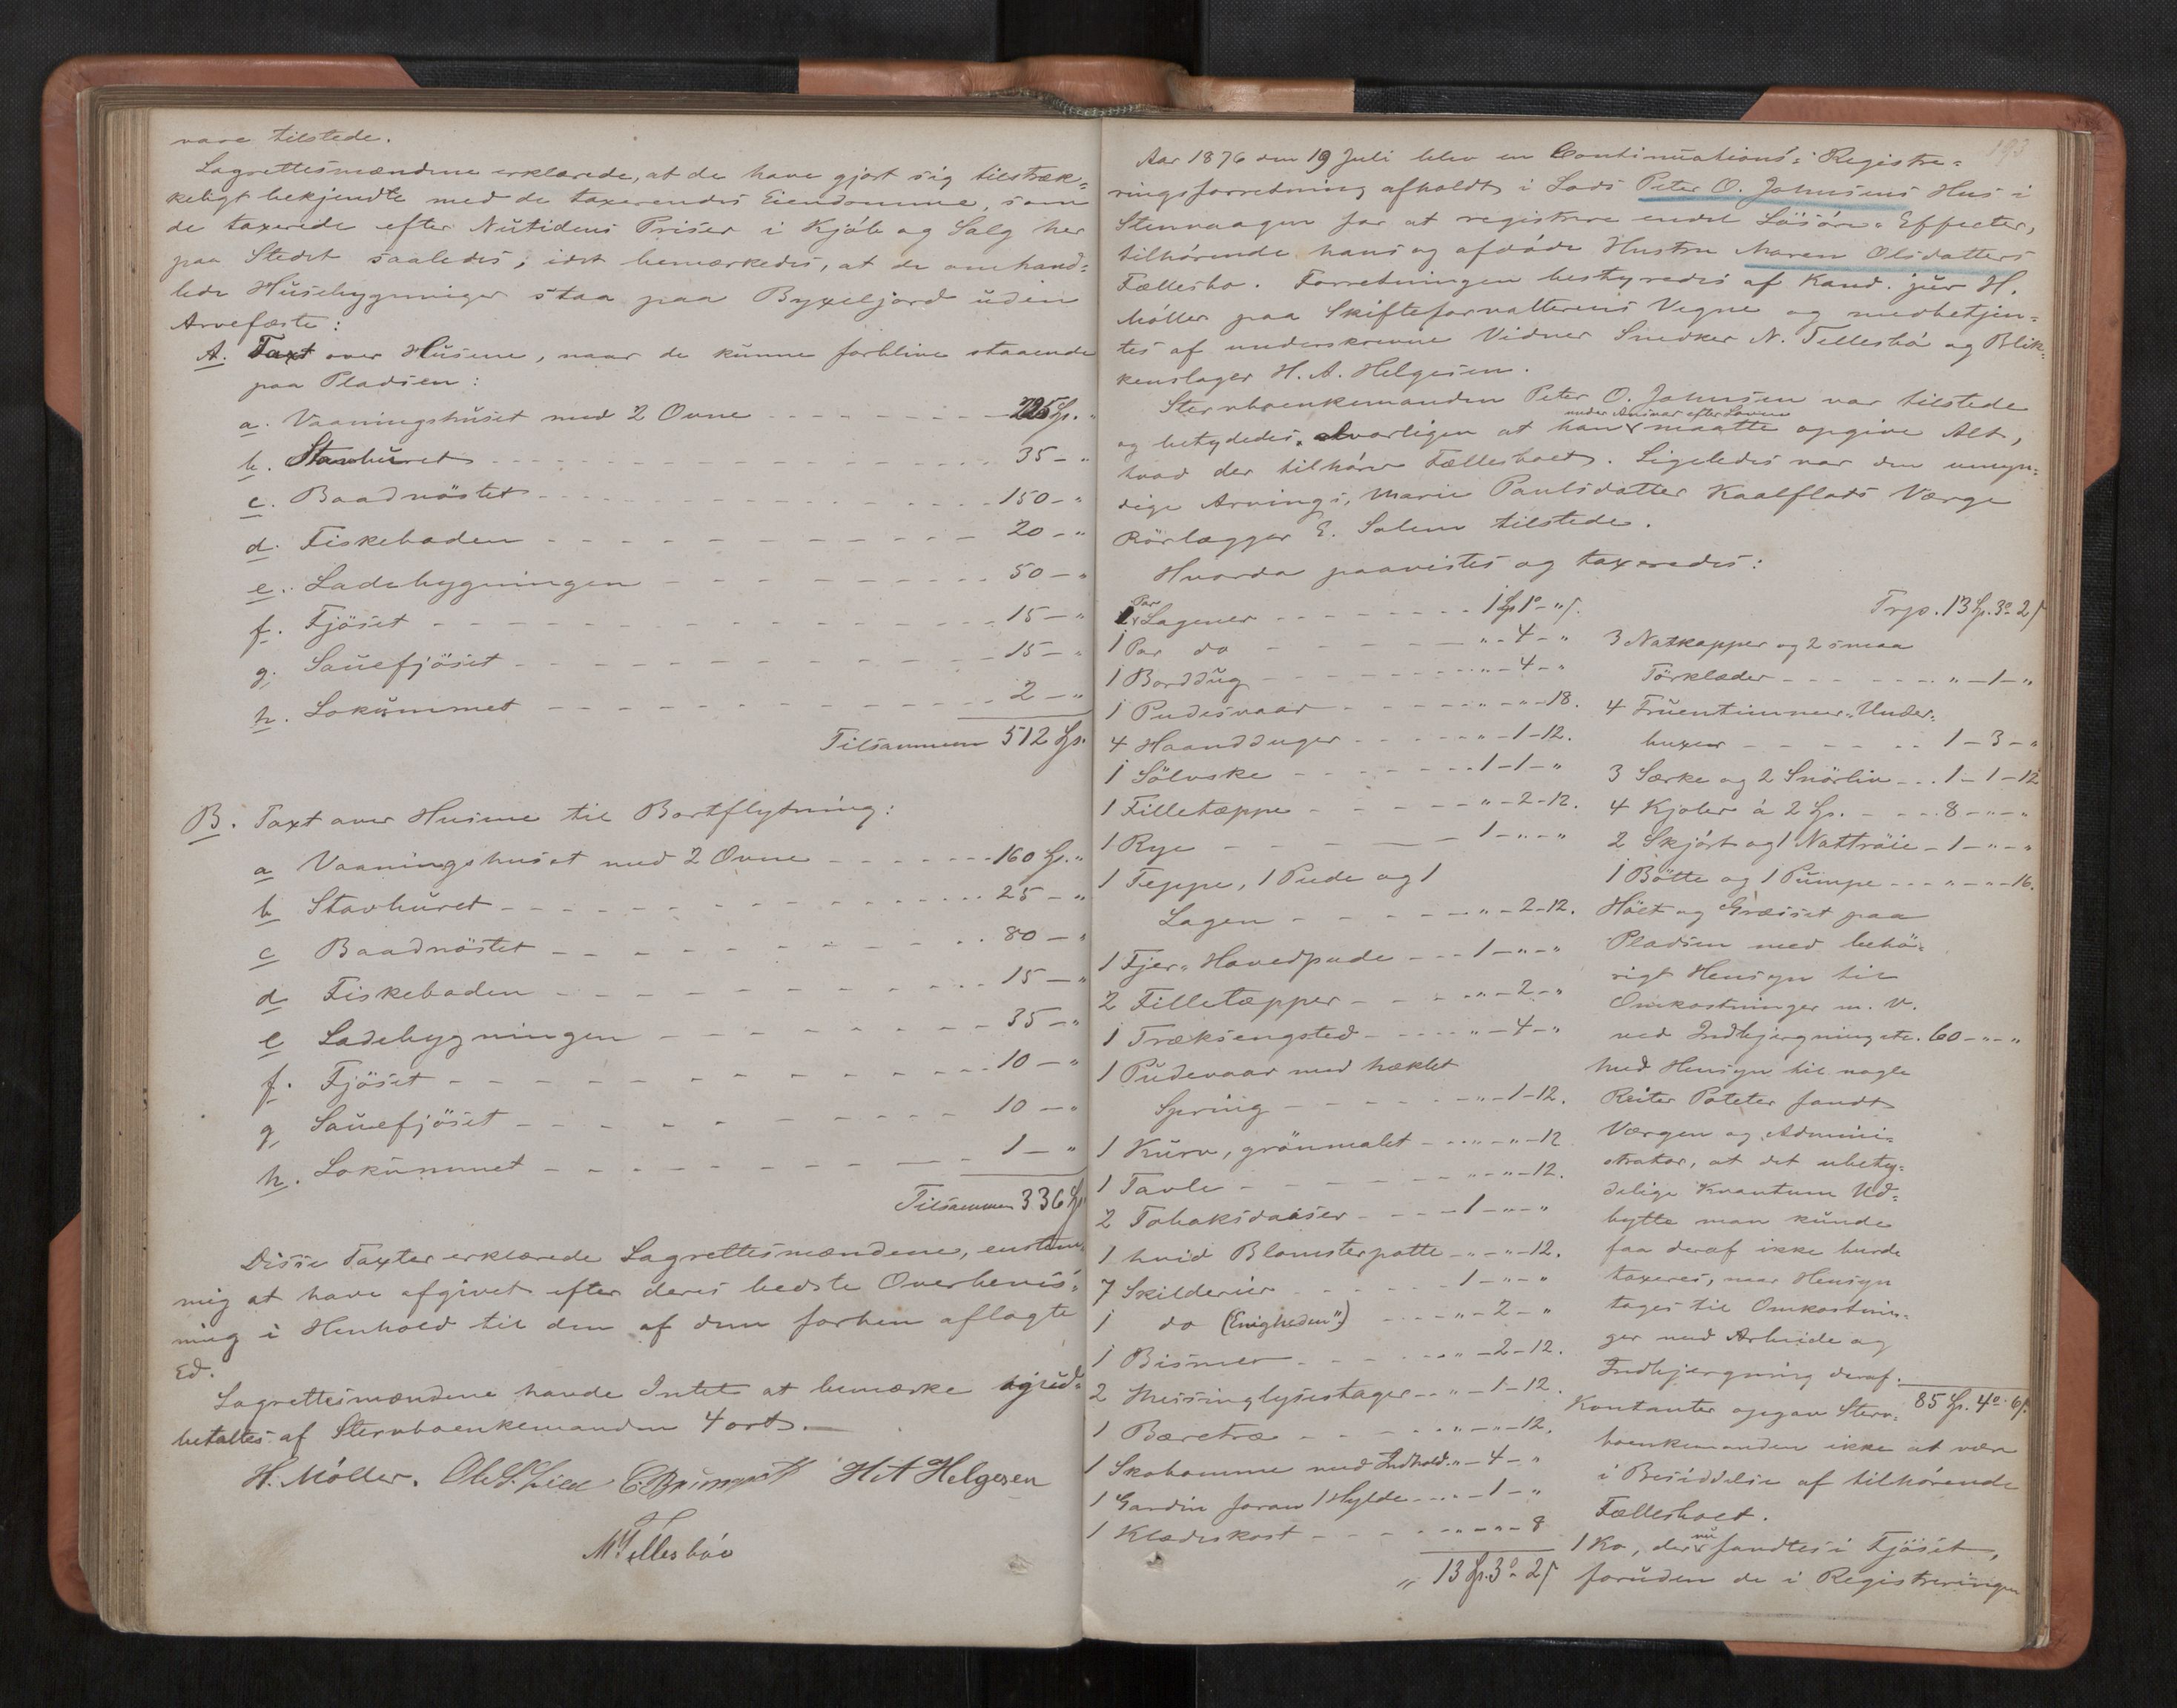 vare tilstede.
Lagrettesmændene erklærede, at de have gjort sig tilstræk=
keligt bekjendte med de taxerendes Eiendomme, som
de taxerede efter Nutidens Priser i Kjøb og Salg her
paa Stedet saaledes, idet bemærkedes, at de omhand=
lede Husebygninger staa paa Byxeljord uden
Arvefæste:
A. Taxt over Husene, naar de kunne forblive staaende
paa Pladsen:
a. Vaaningshuset med 2 Ovne - - - 225 Sp. "
b. Stavburet - - - 35 - "
c. Baadnöstet - - - 150 - "
d. Fiskeboden - - - 20 - "
e. Ladebygningen - - - 50 - "
f. Fjöset - - - 15 - "
g. Sauefjöset - - - 15 - "
h. Lokummet - - - 2 - "
Tilsammen 512 Sp.
B. Taxt over Husene til Bortflytning:
a Vaaningshuset med 2 Ovne - - - 160 Sp. "
b Stavburet - - - 25 - "
c Baadnöstet - - - 80 - "
d Fiskeboden - - - 15 - "
e Ladebygningen - - - 35 - "
f. Fjöset - - - 10 - "
g, Sauefjöset - - - 10 - "
h. Lokummet - - - 1 - "
Tilsammen 336 Sp
Disse Taxter erklærede Lagrettesmændene, enstem=
mig at have afgivet efter deres bedste Overbevis=
ning i Henhold til den af dem forhen aflagte
Ed.
Lagrettesmændene havde Intet at bemærke og ud=
betaltes af Stervboenkemanden 4 ort. —
H. Möller. H A Helgesen
N Tellesböe
193
Aar 1876 den 19 Juli blev en Continuations= Registre=
ringsforretning afholdt i Lods Peter O. Johnsens Hus i
Stenvaagen for at registrere endel Lösöre= Effecter,
tilhörende hans og afdöde Hustru Maren Olsdatters
Fællesbo. Forretningen bestyredes af Kand. jur H.
Möller paa Skifteforvalterens Vegne og medbetjen=
tes af underskrevne Vidner Snedker N. Tellesbö og Blik=
kenslager H. A. Helgesen.
Stervboenkemanden Peter O. Johnsen var tilstede
og betydedes alvorligen at han under Ansvar efter Loven maatte opgive Alt,
hvad der tilhörer Fællesboet. Ligeledes var den umyn=
dige Arvings, Marie Paulsdatter Kaalflots Værge
Rörlægger E. Solem tilstede.
Hvorda paavistes og taxeredes:
1 Par Lagener - - - 1 Sp 1° - " s.
1 Par do - - - " - 4 - "
1 Borddug - - - " - 4 - "
1 Pudesvaar - - - " - " - 18.
4 Haandduger - - - " - 1 - 12.
1 Sölvske - - - 1 - 1 - "
1 Filletæppe - - - " - 2 - 12.
1 Rye - - - 1 - " - "
1 Teppe, 1 Pude og 1
Lagen - - - " - 2 - 12.
1 Fjer= Hovedpude - - - 1 - " - "
2 Filletæpper - - - " - 2 - "
1 Træksengsted - - - " - 4 - "
1 Pudevaar med hæklet
Spring - - - " - 1 - 12.
1 Kurv, grönmalet - - - " - " - 12
1 Tavle - - - " - " - 12.
2 Tobaksdaaser - - - 1 - " - "
1 hvid Blomsterpotte - " - " - 12.
7 Skilderier - - - 1 - " - "
1 do (Enigheden") - - - " - 2 - "
1 Bismer - - - " - 2 - 12.
2 Messinglysestager - - " - 1 - 12.
1 Bæretræ - - - " - " - 12.
1 Skokomme med Indhold. " - 4 - "
1 Gardin foran 1 Hylde - - - 1 - "
1 Klædeskost - - - " - " - 8
" 13 Sp. 3° - 2 s
Trp. 13 Sp. 3° 2 s
3 Natkapper og 2 smaa
Törklæder - - - " - 1 - "
4 Fruentimmer= Under=
buxer - - - 1 - 3 - "
3 Særke og 2 Snörliv - - - 1 - 1 - 12
4 Kjoler à 2 Sp. - - - 8 - " - "
2 Skjört og 1 Nattröie - 1 - " - "
1 Bötte og 1 Pumpe - - - " - " - 16.
Höet og Græsset paa
Pladsen med behö=
rigt Hensyn til
Omkostninger m. v.
ved Indbjergning etc. 60 - " - "
Med Hensyn til nogle
Reiter Poteter fandt
Værgen og Admini=
strator, at det ubety=
delige Kvantum Ud=
bytte man kunde
faa deraf ikke burde
taxeres, naar Hensyn
tages til Omkostnin=
ger med Arbeide og
Indbjergning deraf.
85 Sp. 4° 6 s.
Kontanter opgav Sterv=
boenkemanden ikke at være
i Besiddelse af tilhörende
Fællesboet.
1 Ko, der nu fandtes i Fjöset,
foruden de i Registreringen